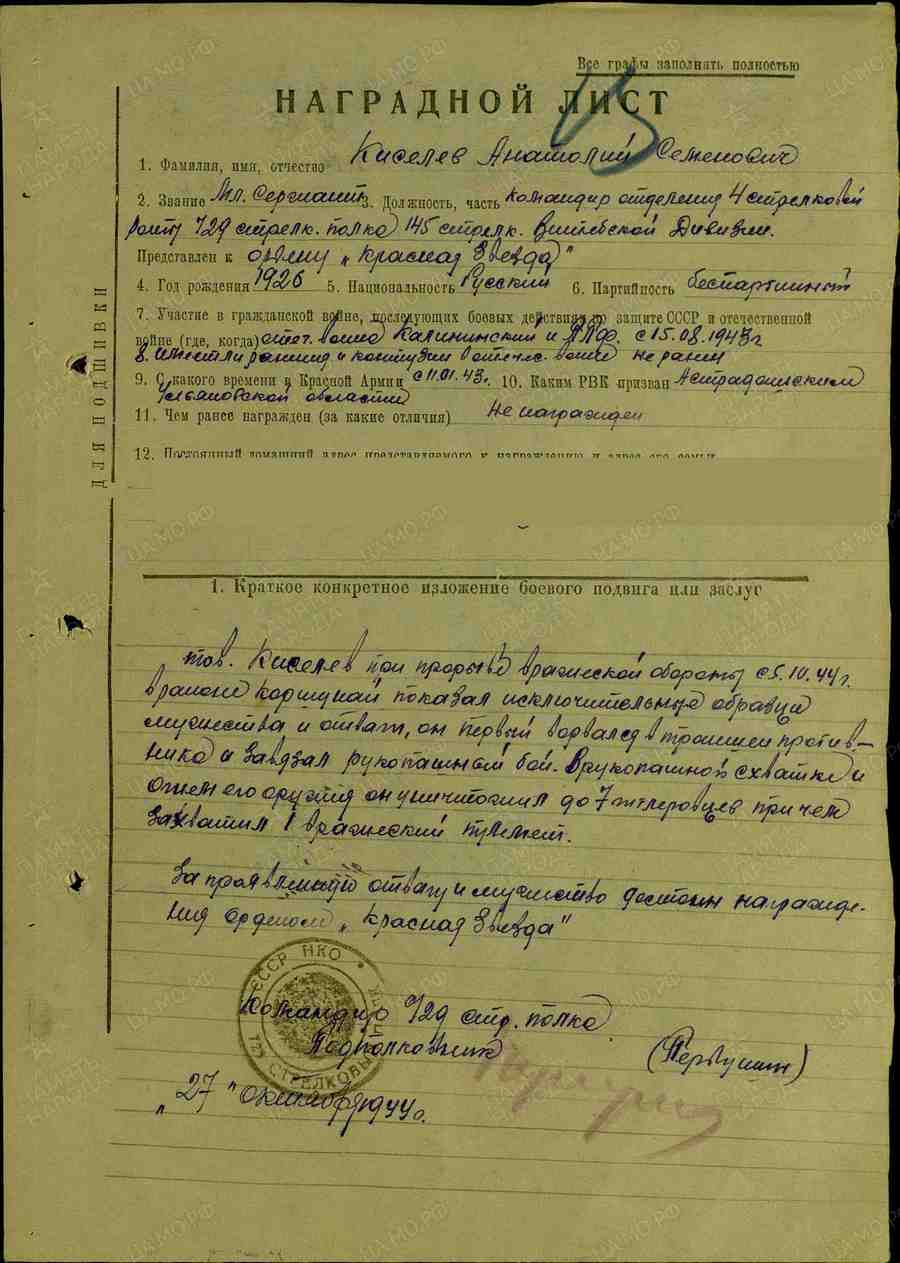 Все графы заполнять полностью
НАГРАДНОЙ ЛИСТ
1. Фамилия, имя, отчество Киселев Анатолий Семенович
2. Звание Мл. Сержант 3. Должность, часть Командир отделения 4 стрелковой
роты 729 стрелк. полка 145 стрелк. Витебской Дивизии.
Представлен к ордену „Красная Звезда"
4. Год рождения 1926 5. Национальность Русский 6. Партийность беспартийный
7. Участие в гражданской войне, последующих боевых действиях по защите СССР и отечественной
войне (где, когда) отеч. война Калининский и 1ПБФ. с 15.08.1943г
8. Имеет ли ранения и контузии в отечес. войне не ранен
9. С какого времени в Красной Армии с 11.01.43г. 10. Каким РВК призван
Ульяновской области
11. Чем ранее награжден (за какие отличия) не награжден
12. Постоянный домашний адрес представляемого к награждению и адрес его семьи
ДЛЯ ПОДШИВКИ
1. Краткое конкретное изложение боевого подвига или заслуг
тов. Киселев при прорыве вражеской обороны с 5.10.44г.
в районе показал исключительные образцы
мужества и отваги, он первый ворвался в траншеи против-
ника и завязал рукопашный бой. В рукопашной схватке и
огнем его оружия он уничтожил до 7 гитлеровцев причем
захватил 1 вражеский пулемет.
За проявленную отвагу и мужество достоин награжде-
ния орденом „Красная Звезда"
СССР НКО
СТРЕЛКОВЫЙ
Командир 729 стр. полка
Подполковник (Первушин)
„27" октября 1944г.
ЦАМО.РФ